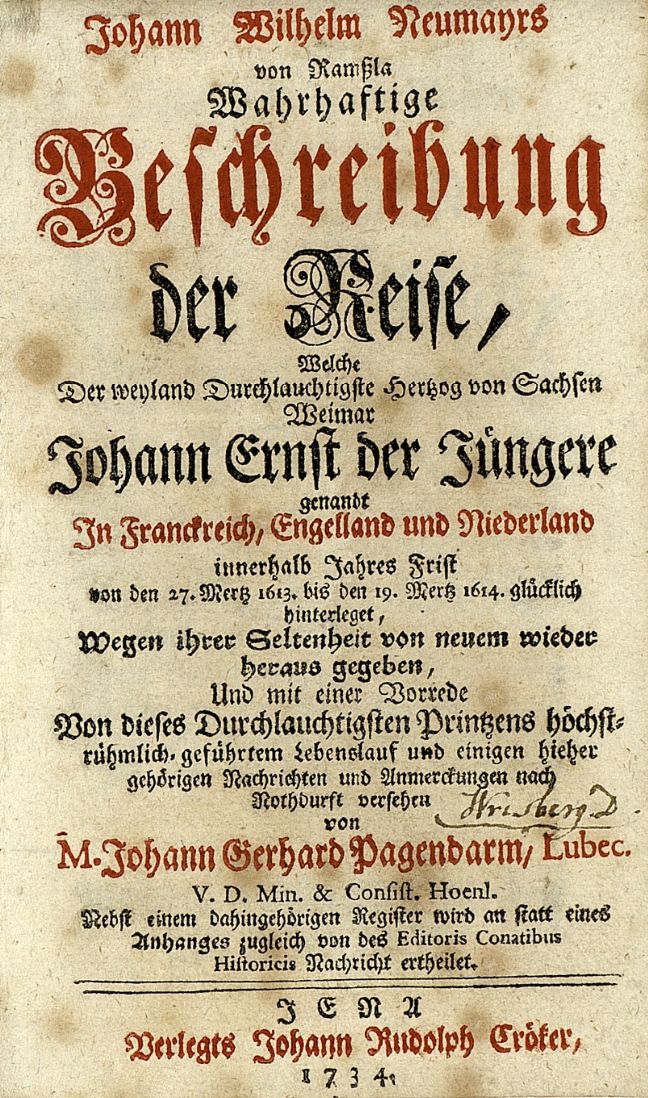 Johann Wilhelm Neumayrs
von Ramßla
Wahrhaftige
Beschreibung
der Reise,
Welche
Der weyland Durchlauchtigste Hertzog von Sachsen
Weimar
Johann Ernst der Jüngere
genandt
In Franckreich, Engelland und Niederland
innerhalb Jahres Frist
von den 27. Mertz 1613. bis den 19. Mertz 1614. glücklich
hinterleget,
Wegen ihrer Seltenheit von neuem wieder
heraus gegeben,
Und mit einer Vorrede
Von dieses Durchlauchtigsten Printzens höchst-
rühmlich-geführtem Lebenslauf und einigen hieher
gehörigen Nachrichten und Anmerckungen nach
Nothdurft versehen
Wrisberg D.
von
M. Johann Gerhard Pagendarm, Lubec.
V. D. Min. & Consist. Hoenl.
Nebst einem dahingehörigen Register wird an statt eines
Anhanges zugleich von des Editoris Conatibus
Historicis Nachricht ertheilet.
JENA
Verlegts Johann Rudolph Cröker,
1734.